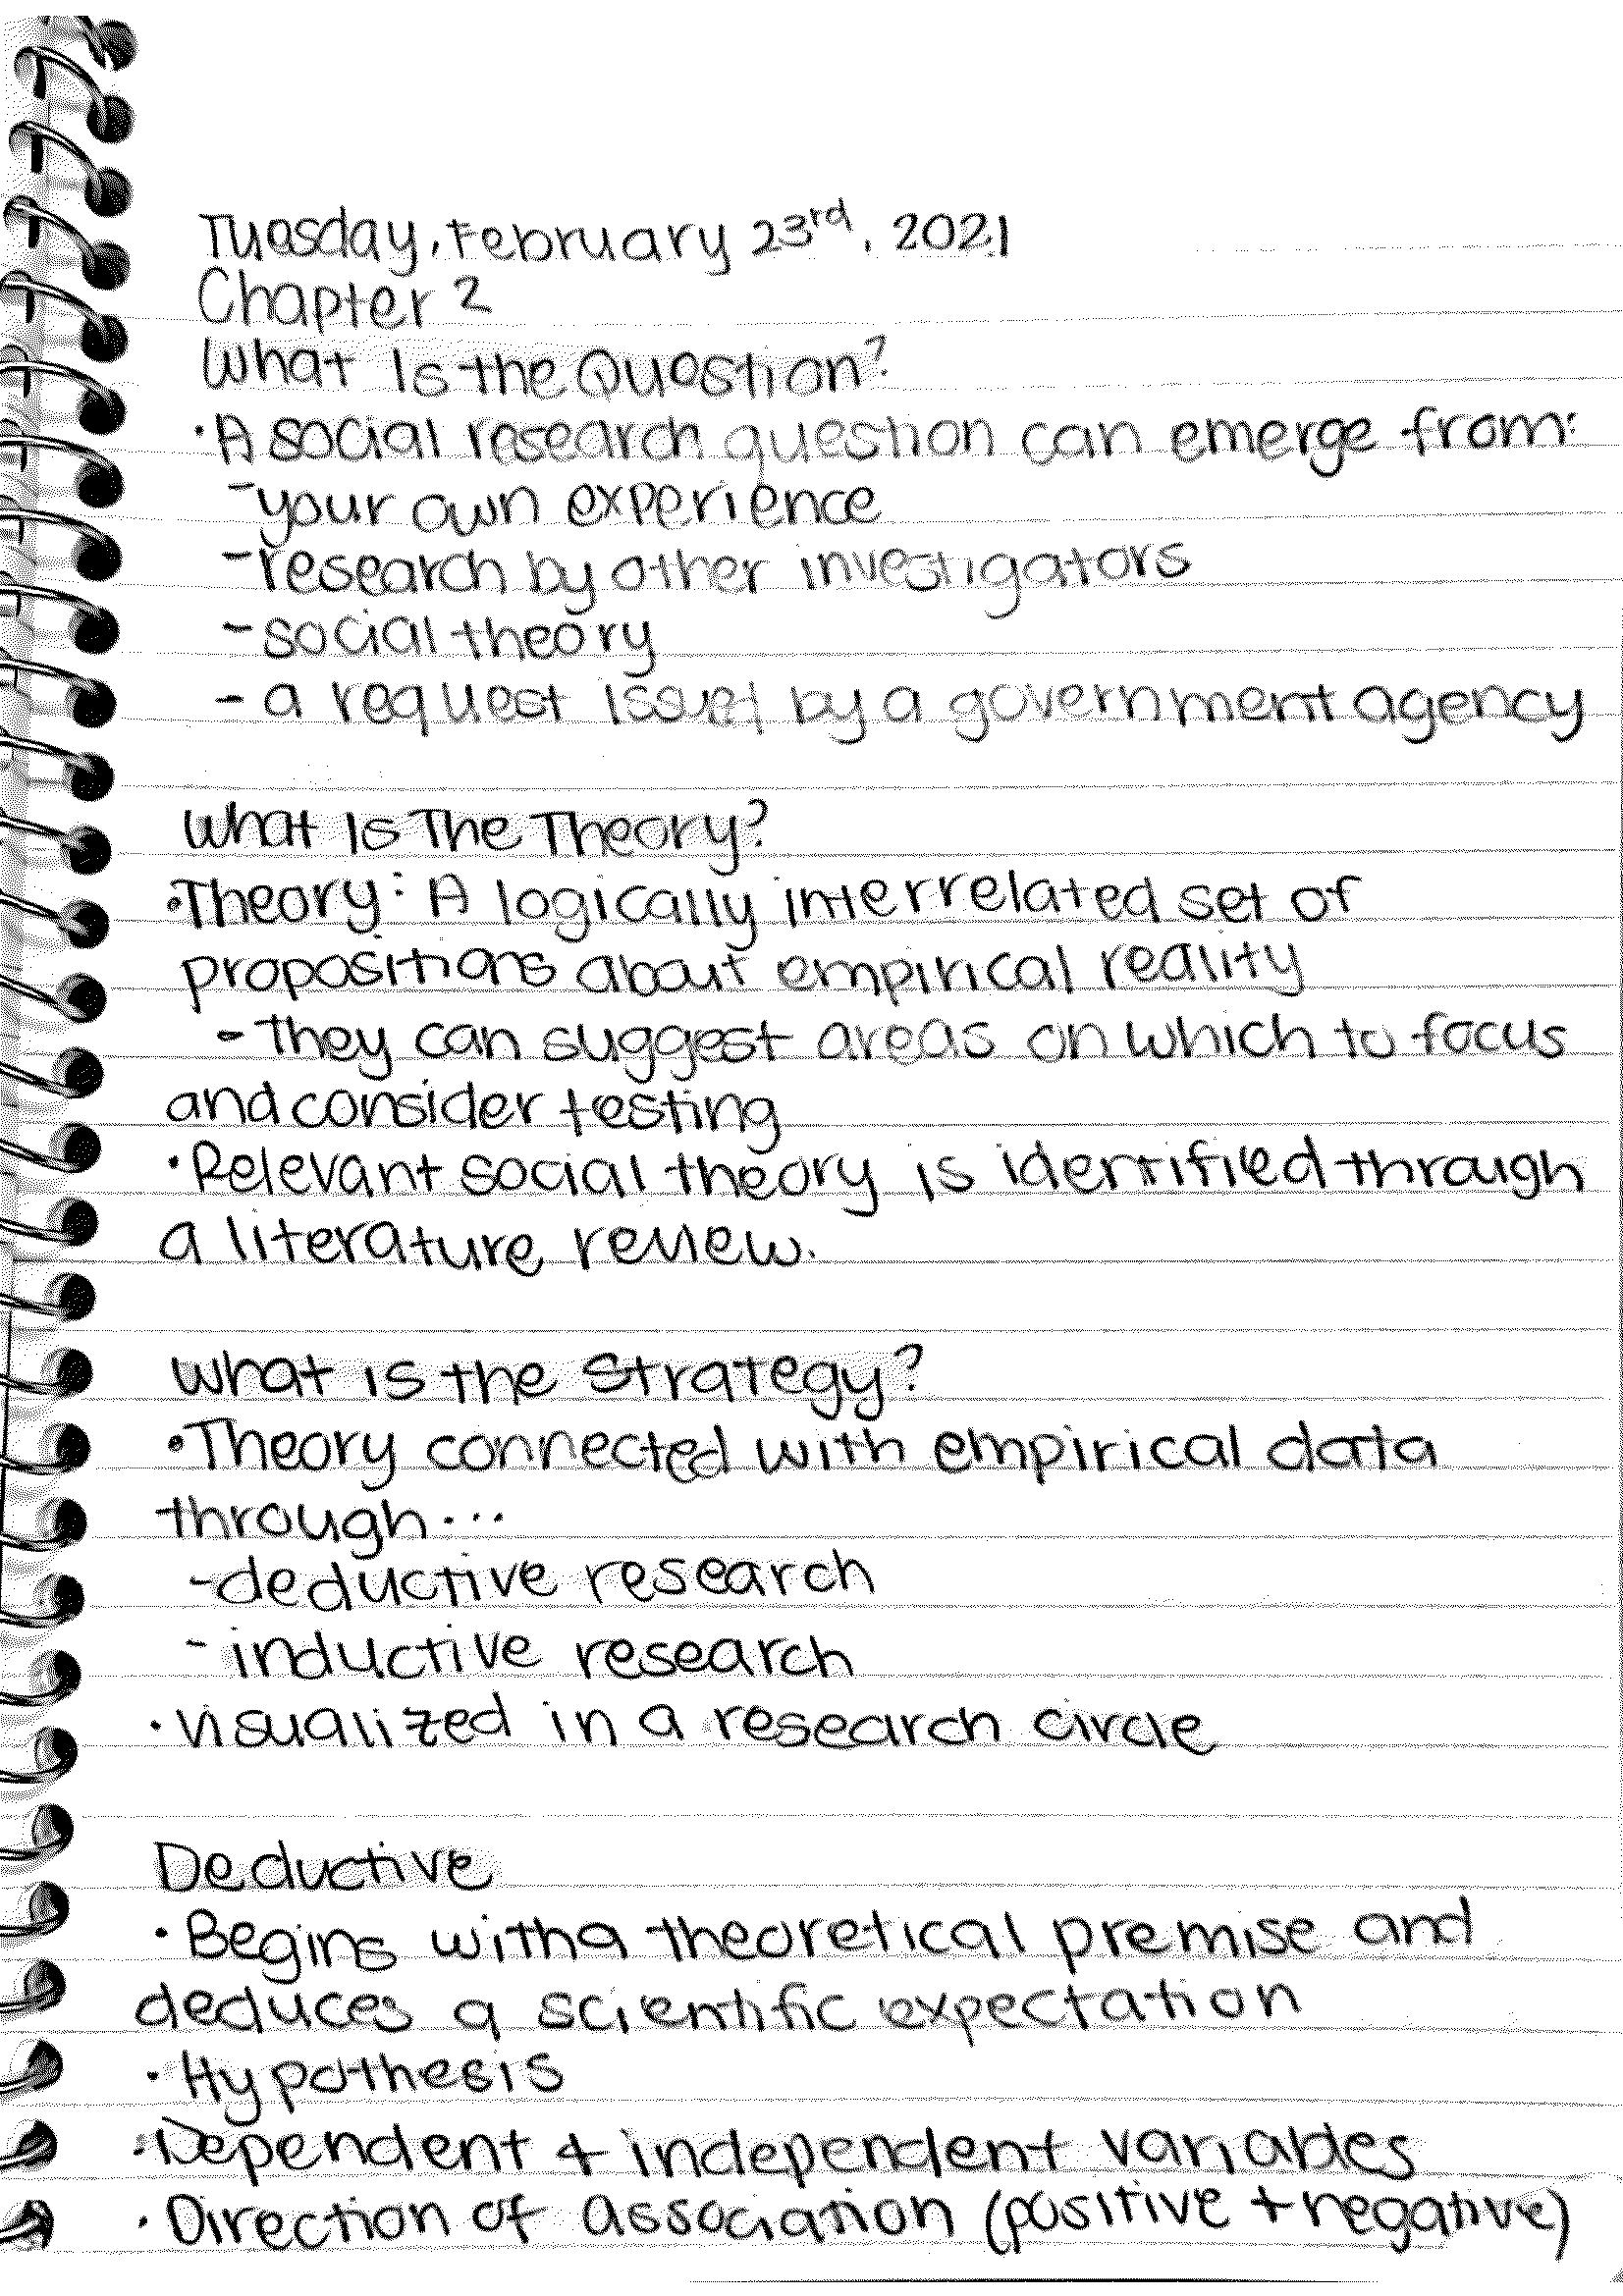 Tuesday, February 23rd, 2021
Chapter 2
What Is the Question?
• A social research question can emerge from:
- your own experience
- research by other investigators
- social theory
- a request issued by a government agency
What Is The Theory?
• Theory: A logically interrelated set of
propositions about empirical reality
- they can suggest areas on which to focus
and consider testing
• Relevant social theory is identified through
a literature review.
What is the Strategy?
• Theory connected with empirical data
through...
- deductive research
- inductive research
• visualized in a research circle
Deductive
• Begins with a theoretical premise and
deduces a scientific expectation
• Hypothesis
• Dependent + independent variables
• Direction of association (positive + negative)